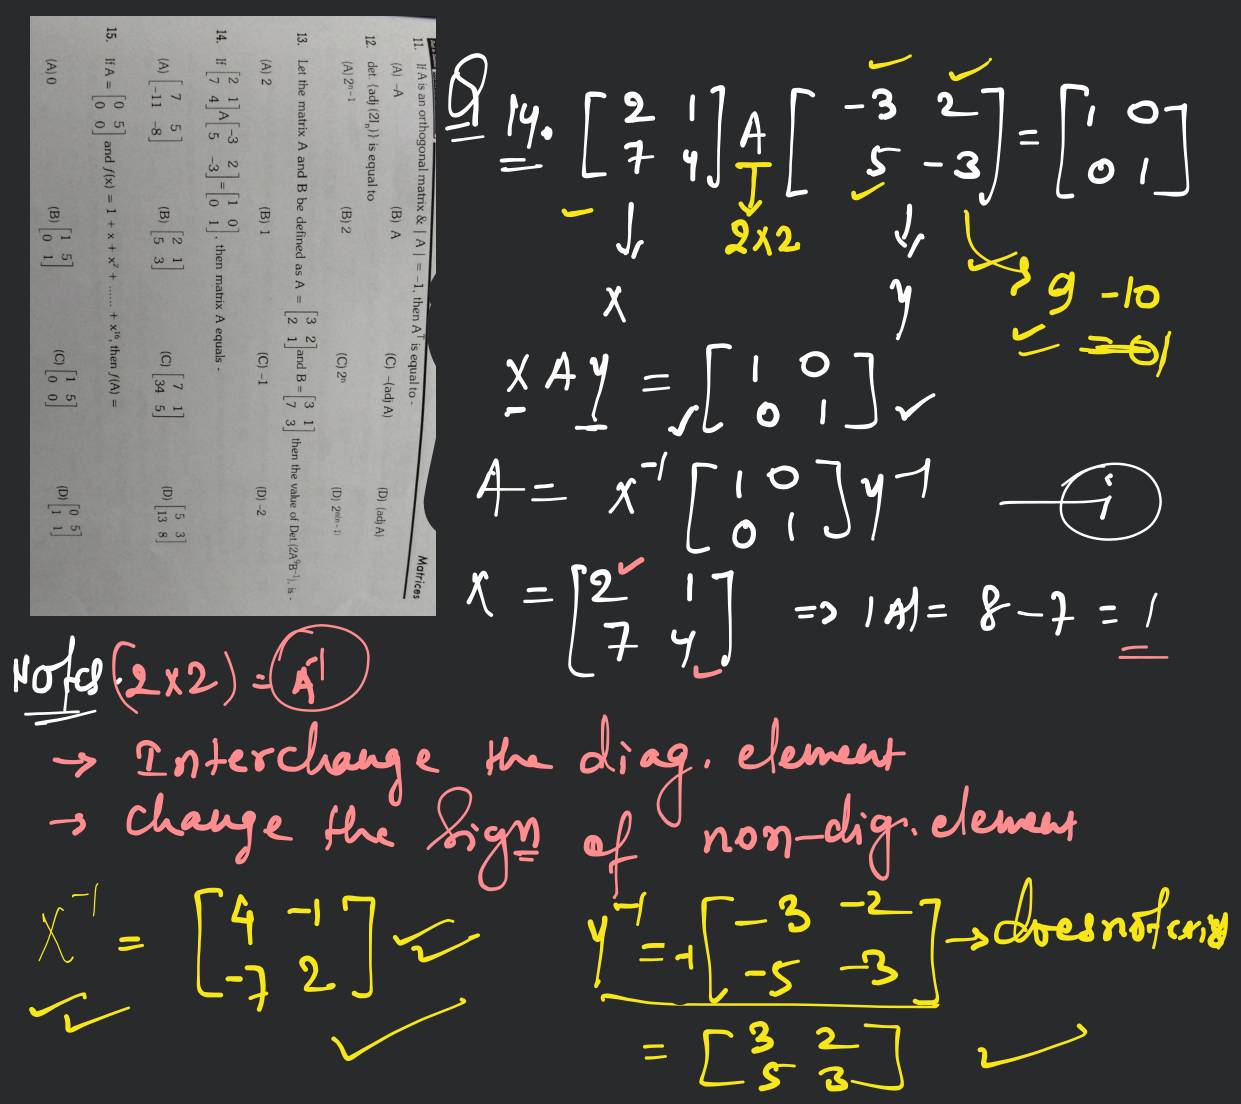 Matrices
11. If A is an orthogonal matrix & | A | = -1, then Aᵀ is equal to -
(A) -A (B) A (C) -(adj A) (D) (adj A)
12. det. (adj (2Iₙ)) is equal to
(A) 2ⁿ⁻¹ (B) 2 (C) 2ⁿ (D) 2ⁿ⁽ⁿ⁻¹⁾
13. Let the matrix A and B be defined as A = [3 2; 2 1] and B = [3 1; 7 3] then the value of Det.(2A⁹B⁻¹), is -
(A) 2 (B) 1 (C) -1 (D) -2
14. If [2 1; 7 4] A [-3 2; 5 -3] = [1 0; 0 1], then matrix A equals -
(A) [7 5; -11 -8] (B) [2 1; 5 3] (C) [7 1; 34 5] (D) [5 3; 13 8]
15. If A = [0 5; 0 0] and f(x) = 1 + x + x² + ...... + x¹⁶, then f(A) =
(A) 0 (B) [1 5; 0 1] (C) [1 5; 0 0] (D) [0 5; 1 1]
Q 14. [2 1; 7 4] A [-3 2; 5 -3] = [1 0; 0 1]
2x2
x y
9 -10
x A y = [1 0; 0 1]
A = x⁻¹ [1 0; 0 1] y⁻¹ — i
x = [2 1; 7 4] => |A| = 8 - 7 = 1
Notes. (2x2) = A⁻¹
→ Interchange the diag. element
→ change the sign of non-dig. element
x⁻¹ = [4 -1; -7 2]
y⁻¹ = -1 [-3 -2; -5 -3] → does not exist
= [3 2; 5 3]